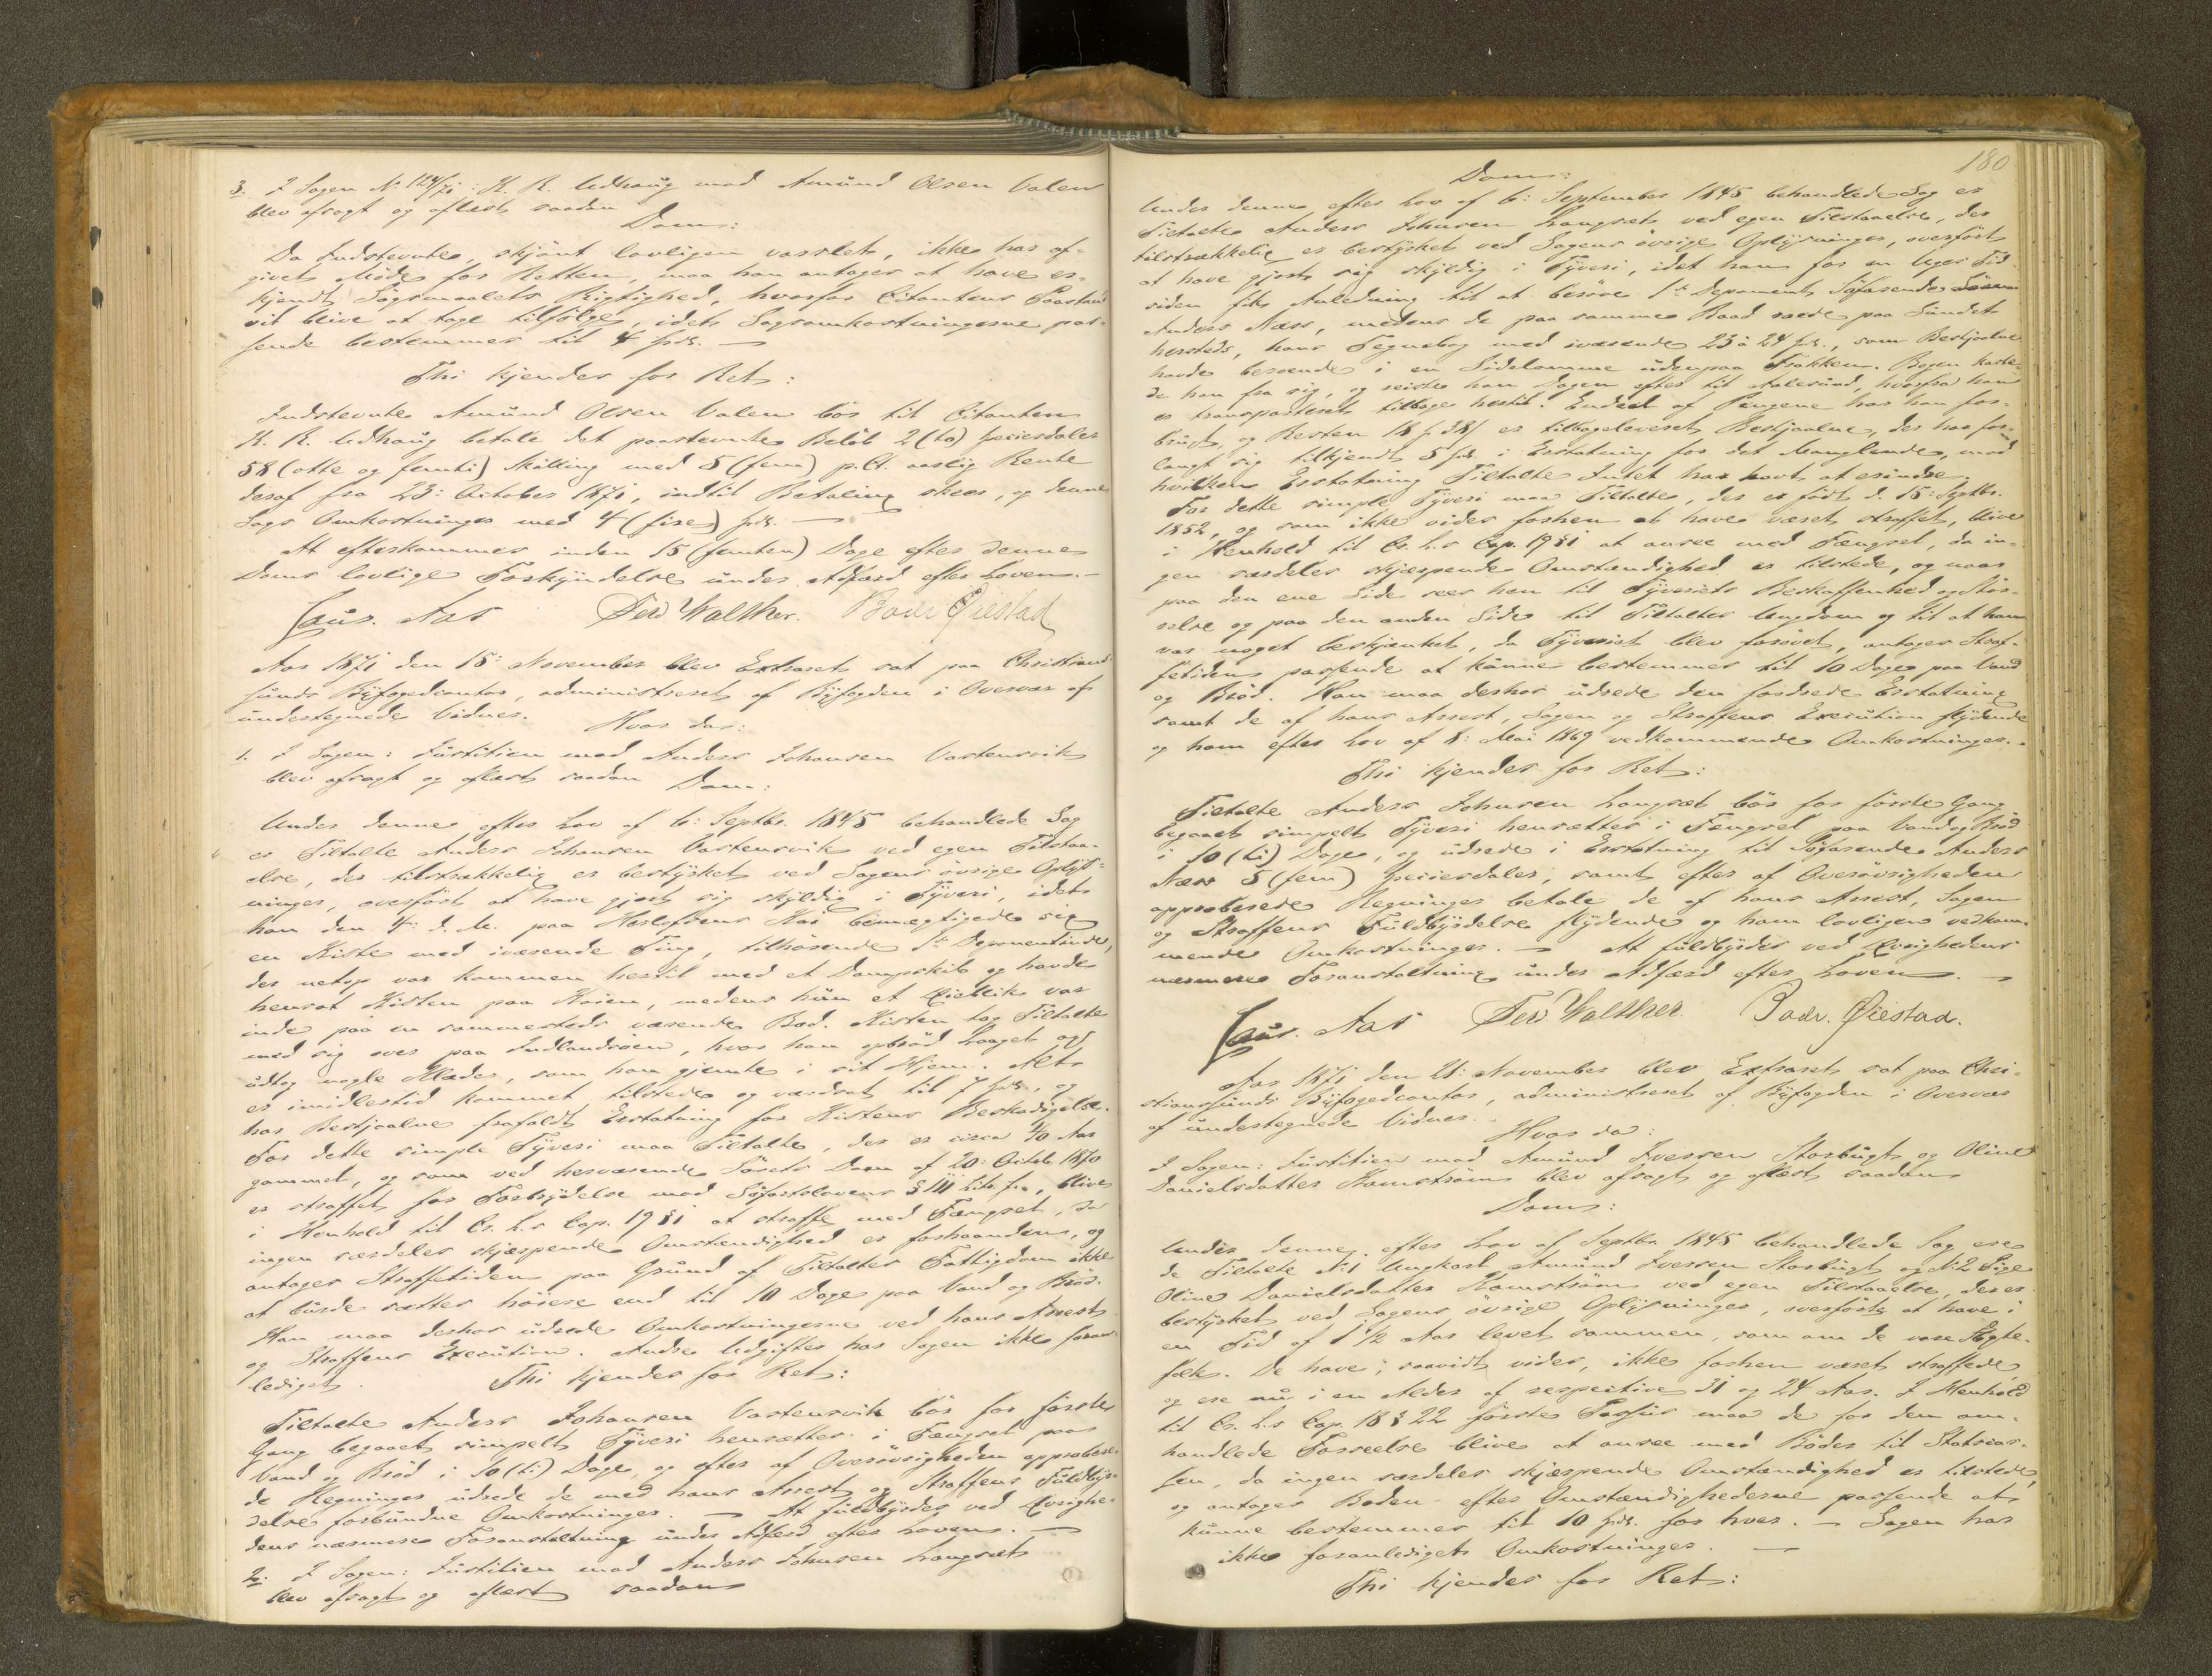 3. I Sagen No 124/71: K. R. Udhaug mod Amund Olsen Valen
blev afsagt og oplæst saadan
Dom:
Da Indstevnte, skjønt lovligen varslet, ikke har af-
givet Møde for Retten, maa han antages at have er-
kjendt Søgsmaalets Rigtighed, hvorfor Citantens Paastand
vil blive at tage tilfølge, idet Sagsomkostningerne pas-
sende bestemmes til 4 Spd. —
Thi kjendes for Ret:
Indstevnte Amund Olsen Valen bør til Citanten
K. R. Udhaug betale det paastevnte Beløb 2 (to) Speciesdaler
58 (otte og femti) Skilling med 5 (fem) p.Ct. aarlig Rente
deraf fra 23: October 1871, indtil Betaling skeer, og denne
Sags Omkostninger med 4 (fire) Spd. —
At efterkommes inden 15 (femten) Dage efter denne
Doms lovlige Forkyndelse under Adfærd efter Loven. —
Laur. Aas Ferd Walther. Baar Øiestad
Aar 1871 den 18: November blev Extraret sat paa Christian-
sunds Byfogedcontor, administreret af Byfogden i Overvær af
undertegnede Vidner.
Hvor da:
1. I Sagen: Justitien mod Anders Johansen Vartensvik
blev afsagt og oplæst saadan
Dom:
Under denne efter Lov af 6: Septbr. 1845 behandlede Sag
er Tiltalte Anders Johansen Vartensvik ved egen Tilstaa-
else, der tilstrækkelig er bestyrket ved Sagens øvrige Oplys-
ninger, overført at have gjort sig skyldig i Tyveri, idet
han den 4: d. M. paa Kai bemægtigede sig
en Kiste med iværende Ting, tilhørende 1ste Deponentinde,
der netop var kommen hertil med et Dampskib og havde
hensat Kisten paa Kaien, medens hun et Øieblik var
inde paa en sammesteds værende Bod. Kisten tog Tiltalte
med sig over paa Indlandsøen, hvor han opbrød Laaget og
udtog nogle Klæder, som han gjemte i sit Hjem. Alt
er imidlertid kommet tilstede og værdsat til 7 Spd., og
har Bestjaalne frafaldt Erstatning for Kistens Beskadigelse.
For dette simple Tyveri maa Tiltalte, der er circa 40 Aar
gammel, og som ved herværende Søretts Dom af 20: Octob. 1870
er straffet for Forbrydelse mod Søfartslovens § 111 Litr. f., blive
i Henhold til Cr. L.s Cap. 19 § 1 at straffe med Fængsel, da
ingen særdeles skjærpende Omstændighed er forhaanden, og
antages Straffetiden paa Grund af Tiltaltes Fattigdom ikke
at burde sættes høiere end til 10 Dage paa Vand og Brød.
Han maa derhos udrede Omkostningerne ved hans Arrest
og Straffens Execution. Andre Udgifter har Sagen ikke foran-
lediget.
Thi kjendes for Ret:
Tiltalte Anders Johansen Vartensvik bør for første
Gang begaaet simpelt Tyveri hensættes i Fængsel paa
Vand og Brød i 10 (ti) Dage, og efter af Overøvrigheden approbere-
de Regninger udrede de med hans Arrest og Straffens Fuldbyr-
delse forbundne Omkostninger. — At fuldbyrdes ved Øvrighe-
dens nærmere Foranstaltning under Adfærd efter Loven. —
2. I Sagen: Justitien mod Anders Johnsen Langsæt
blev afsagt og oplæst saadan
180
Dom:
Under denne efter Lov af 6: September 1845 behandlede Sag er
Tiltalte Anders Johnsen Langsæt ved egen Tilstaaelse, der
tilstrækkelig er bestyrket ved Sagens øvrige Oplysninger, overført
at have gjort sig skyldig i Tyveri, idet han for en Uges Tid
siden fik Anledning til at berøve 1ste Deponent, Søfarende
Anders Næss, medens de paa samme Baad roede paa Sundet
hersteds, hans Tegnebog med iværende 23 à 24 Spd., som Bestjaalne
havde beroende i en Sidelomme udenpaa Frakken. Bogen kaste-
de han fra sig, og reiste han Dagen efter til Aalesund, hvorfra han
er transporteret tilbage hertil. Endeel af Pengene har han for-
brugt, og Resten 18 Spd. 38 s. er tilbageleveret Bestjaalne, der har for-
langt sig tilkjendt 5 Spd. i Erstatning for det Manglende, mod
hvilken Erstatning Tiltalte Intet har havt at erindre.
For dette simple Tyveri maa Tiltalte, der er født d. 15: Septbr.
1852, og som ikke vides forhen at have været straffet, blive
i Henhold til Cr. L.s Cap. 19 § 1 at ansee med Fængsel, da in-
gen særdeles skjærpende Omstændighed er tilstede, og naar
paa den ene Side sees hen til Tyveriets Beskaffenhed og Stør-
relse og paa den anden Side til Tiltaltes Ungdom og til at han
var noget beskjænket, da Tyveriet blev forøvet, antages Straf-
fetiden passende at kunne bestemmes til 10 Dage paa Vand
og Brød. Han maa derhos udrede den fordrede Erstatning
samt de af hans Arrest, Sagen og Straffens Execution flydende
og ham efter Lov af 8: Mai 1869 vedkommende Omkostninger. -
Thi kjendes for Ret:
Tiltalte Anders Johnsen Langsæt bør for første Gang
begaaet simpelt Tyveri hensættes i Fængsel paa Vand og Brød
i 10 (ti) Dage, og udrede i Erstatning til Søfarende Anders
Næss 5 (fem) Speciesdaler, samt efter af Overøvrigheden
approberede Regninger betale de af hans Arrest, Sagen
og Straffens Fuldbyrdelse flydende og ham lovligen vedkom-
mende Omkostninger. — At fuldbyrdes ved Øvrighedens
nærmere Foranstaltning under Adfærd efter Loven. —
Laur. Aas Ferd Walther. Baar. Øiestad.
Aar 1871 den 21: November blev Extraret sat paa Chri-
stiansunds Byfogedcontor, administreret af Byfogden i Overvær
af undertegnede Vidner.
Hvor da:
I Sagen: Justitien mod Amund Iversen Storbugt og Oline
Danielsdatter Kamstrøm blev afsagt og oplæst saadan
Dom:
Under denne efter Lov af Septbr. 1845 behandlede Sag ere
de Tiltalte No 1 Ungkarl Amund Iversen Storbugt og No 2 Pige
Oline Danielsdatter Kamstrøm ved egen Tilstaaelse, der er
bestyrket ved Sagens øvrige Oplysninger, overførte at have i
en Tid af 1 1/2 Aar levet sammen, som om de vare Ægte-
folk. De have, saavidt vides, ikke forhen været straffede,
og ere nu i en Alder af respective 31 og 24 Aar. I Henhold
til Cr. L.s Cap. 18 § 22 første Passus maa de for den om-
handlede Forseelse blive at ansee med Bøder til Statscas-
sen, da ingen særdeles skjærpende Omstændighed er tilstede,
og antages Boden efter Omstændighederne passende at
kunne bestemmes til 10 Spd. for hver. — Sagen har
ikke foranlediget Omkostninger. —
Thi kjendes for Ret: